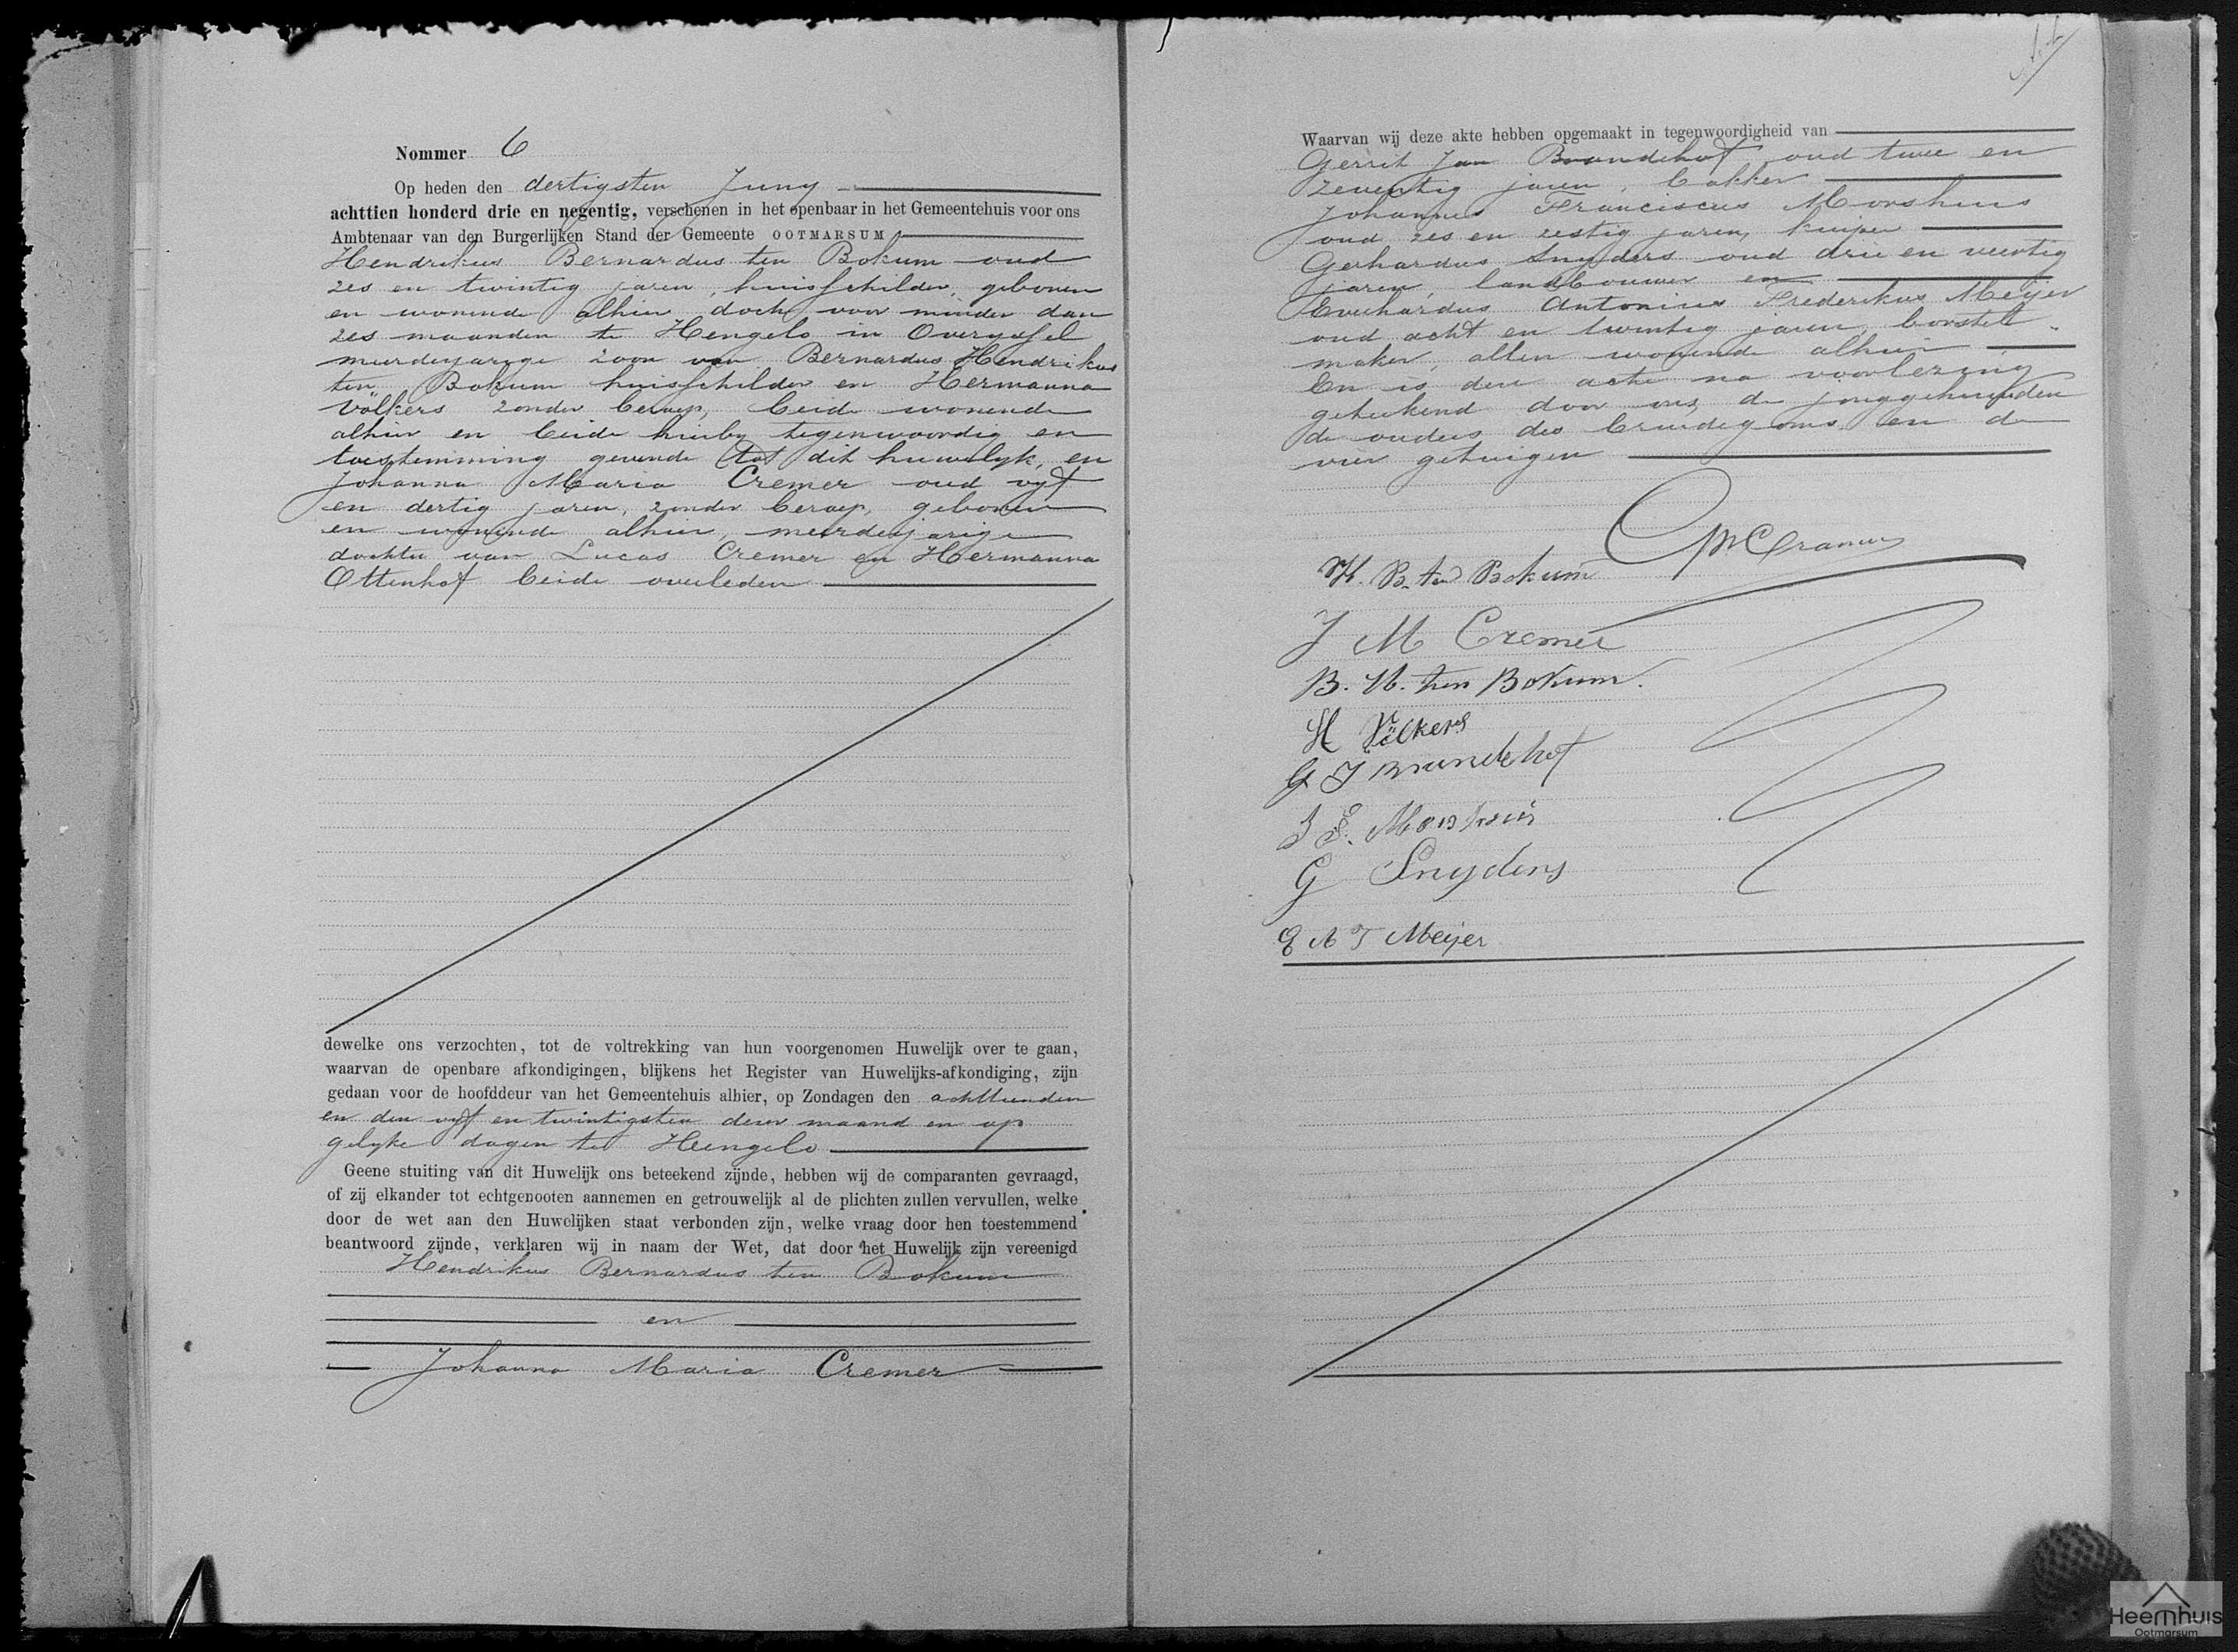 Nommer 6
Op heden den dertigsten Juny
achttien honderd drie en negentig, verschenen in het openbaar in het Gemeentehuis voor ons
Ambtenaar van den Burgerlijken Stand der Gemeente OOTMARSUM
Hendrikus Bernardus ten Bokum oud
zes en twintig jaren, huisschilder, geboren
en wonende alhier doch voor minder dan
zes maanden te Hengelo in Overyssel
meerderjarige zoon van Bernardus Hendrikus
ten Bokum huisschilder en Hermanna
Völkers zonder beroep, beide wonende
alhier en beide hierby tegenwoordig en
toestemming gevende tot dit huwelyk, en
Johanna Maria Cremer oud vyf
en dertig jaren, zonder beroep, geboren
en wonende alhier, meerderjarige
dochter van Lucas Cremer en Hermanna
Ottenhof beide overleden
dewelke ons verzochten, tot de voltrekking van hun voorgenomen Huwelijk over te gaan,
waarvan de openbare afkondigingen, blijkens het Register van Huwelijks-afkondiging, zijn
gedaan voor de hoofddeur van het Gemeentehuis alhier, op Zondagen den achttienden
en den vyf en twintigsten dezer maand en op
gelyke dagen te Hengelo
Geene stuiting van dit Huwelijk ons beteekend zijnde, hebben wij de comparanten gevraagd,
of zij elkander tot echtgenooten aannemen en getrouwelijk al de plichten zullen vervullen, welke
door de wet aan den Huwelijken staat verbonden zijn, welke vraag door hen toestemmend
beantwoord zijnde, verklaren wij in naam der Wet, dat door het Huwelijk zijn vereenigd
Hendrikus Bernardus ten Bokum
en
Johanna Maria Cremer
Waarvan wij deze akte hebben opgemaakt in tegenwoordigheid van
Gerrit Jan Brundehof, oud twee en
zeventig jaren, bakker
Johannes Franciscus Morshuis
oud zes en zestig jaren, kuiper
Gerhardus Snyders oud drie en veertig
jaren, landbouwer en
Everhardus Antonius Frederikus Meijer
oud acht en twintig jaren, borstel-
maker, allen wonende alhier
En is deze acte na voorlezing
geteekend door ons, de jonggehuwden
de ouders des bruidegoms en de
vier getuigen
H. B. ten Bokum
J M Cremer
B. H. ten Bokum.
H Völkers
G J Brundehof
J F. Morshuis
G Snyders
E A F Meijer
Heemhuis
Ootmarsum